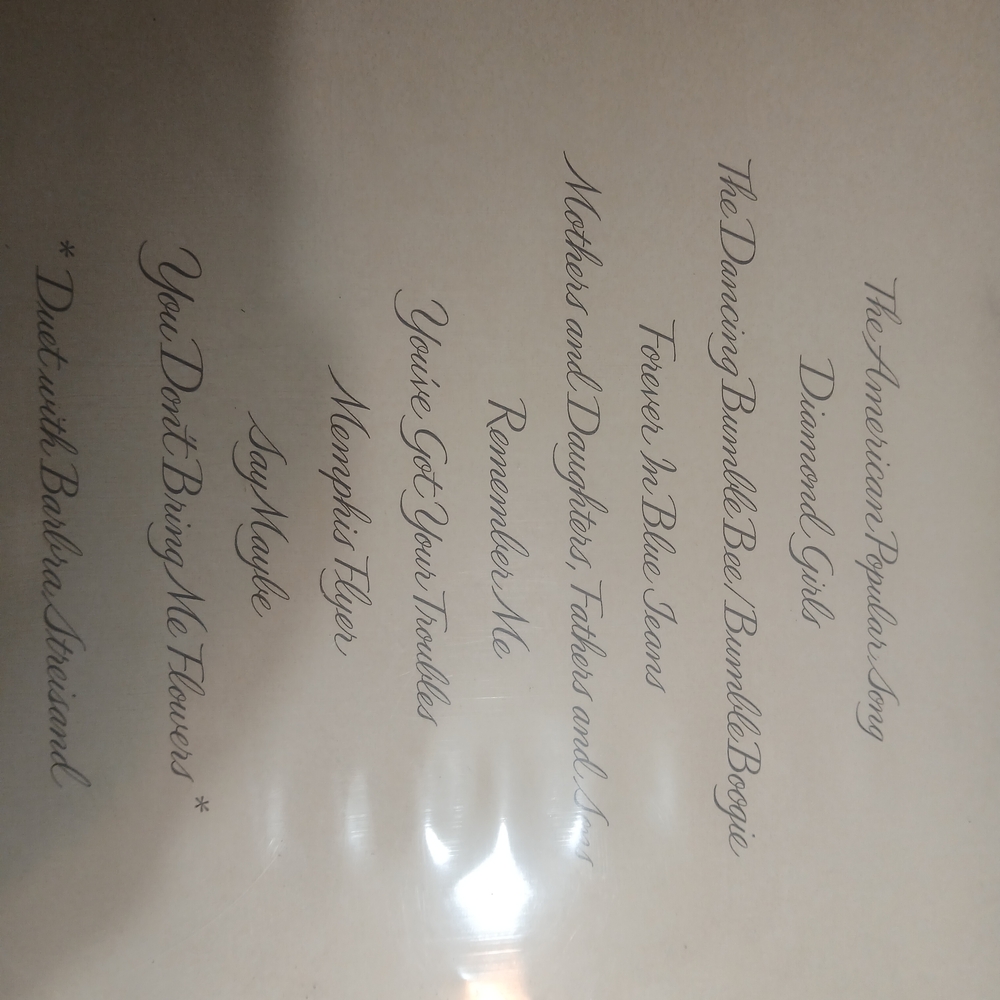 The American Popular Song
Diamond Girls
The Dancing Bumble Bee / Bumble Boogie
Forever In Blue Jeans
Mothers and Daughters, Fathers and Sons
Remember Me
You've Got Your Troubles
Memphis Flyer
Say Maybe
You Don't Bring Me Flowers *
* Duet with Barbra Streisand